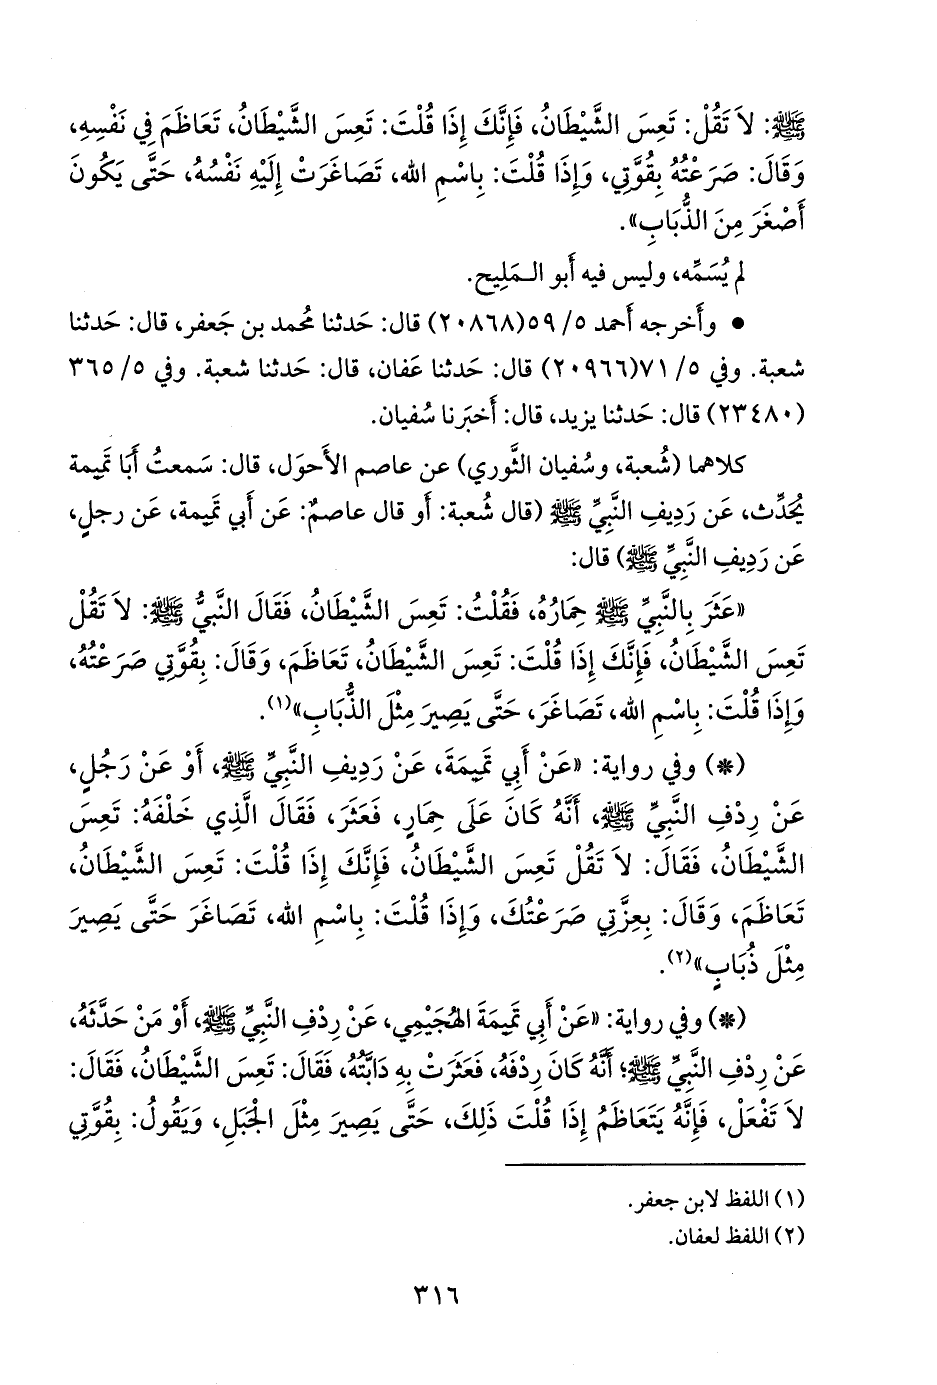 ﷺ: لاَ تَقُلْ: تَعِسَ الشَّيْطَانُ، فَإِنَّكَ إِذَا قُلْتَ: تَعِسَ الشَّيْطَانُ، تَعَاظَمَ فِي نَفْسِهِ،
وَقَالَ: صَرَعْتُهُ بِقُوَّتِي، وَإِذَا قُلْتَ: بِاسْمِ الله، تَصَاغَرَتْ إِلَيْهِ نَفْسُهُ، حَتَّى يَكُونَ
أَصْغَرَ مِنَ الذُّبَابِ».
لم يُسَمِّه، وليس فيه أَبو الـمَلِيح.
• وأَخرجه أَحمد ٥/ ٥٩(٢٠٨٦٨) قال: حَدثنا مُحمد بن جَعفر، قال: حَدثنا
شعبة. وفي ٥/ ٧١(٢٠٩٦٦) قال: حَدثنا عَفان، قال: حَدثنا شعبة. وفي ٥/ ٣٦٥
(٢٣٤٨٠) قال: حَدثنا يزيد، قال: أَخبَرنا سُفيان.
كلاهما (شُعبة، وسُفيان الثَّوري) عن عاصم الأَحوَل، قال: سَمعتُ أَبَا تَمِيمة
يُحَدِّث، عَن رَدِيفِ النَّبِيِّ ﷺ (قال شُعبة: أَو قال عاصمٌ: عَن أَبي تَمِيمة، عَن رجلٍ،
عَن رَدِيفِ النَّبِيِّ ﷺ) قال:
«عَثَرَ بِالنَّبِيِّ ﷺ حِمَارُهُ، فَقُلْتُ: تَعِسَ الشَّيْطَانُ، فَقَالَ النَّبِيُّ ﷺ: لاَ تَقُلْ
تَعِسَ الشَّيْطَانُ، فَإِنَّكَ إِذَا قُلْتَ: تَعِسَ الشَّيْطَانُ، تَعَاظَمَ، وَقَالَ: بِقُوَّتِي صَرَعْتُهُ،
وَإِذَا قُلْتَ: بِاسْمِ الله، تَصَاغَرَ، حَتَّى يَصِيرَ مِثْلَ الذُّبَابِ»(١).
(*) وفي رواية: «عَنْ أَبِي تَمِيمَةَ، عَنْ رَدِيفِ النَّبِيِّ ﷺ، أَوْ عَنْ رَجُلٍ،
عَنْ رِدْفِ النَّبِيِّ ﷺ، أَنَّهُ كَانَ عَلَى حِمَارٍ، فَعَثَرَ، فَقَالَ الَّذِي خَلْفَهُ: تَعِسَ
الشَّيْطَانُ، فَقَالَ: لاَ تَقُلْ تَعِسَ الشَّيْطَانُ، فَإِنَّكَ إِذَا قُلْتَ: تَعِسَ الشَّيْطَانُ،
تَعَاظَمَ، وَقَالَ: بِعِزَّتِي صَرَعْتُكَ، وَإِذَا قُلْتَ: بِاسْمِ الله، تَصَاغَرَ حَتَّى يَصِيرَ
مِثْلَ ذُبَابٍ»(٢).
(*) وفي رواية: «عَنْ أَبِي تَمِيمَةَ الهُجَيْمِي، عَنْ رِدْفِ النَّبِيِّ ﷺ، أَوْ مَنْ حَدَّثَهُ،
عَنْ رِدْفِ النَّبِيِّ ﷺ؛ أَنَّهُ كَانَ رِدْفَهُ، فَعَثَرَتْ بِهِ دَابَّتُهُ، فَقَالَ: تَعِسَ الشَّيْطَانُ، فَقَالَ:
لاَ تَفْعَلْ، فَإِنَّهُ يَتَعَاظَمُ إِذَا قُلْتَ ذَلِكَ، حَتَّى يَصِيرَ مِثْلَ الْجَبَلِ، وَيَقُولُ: بِقُوَّتِي
(١) اللفظ لابن جعفر.
(٢) اللفظ لعفان.
٣١٦